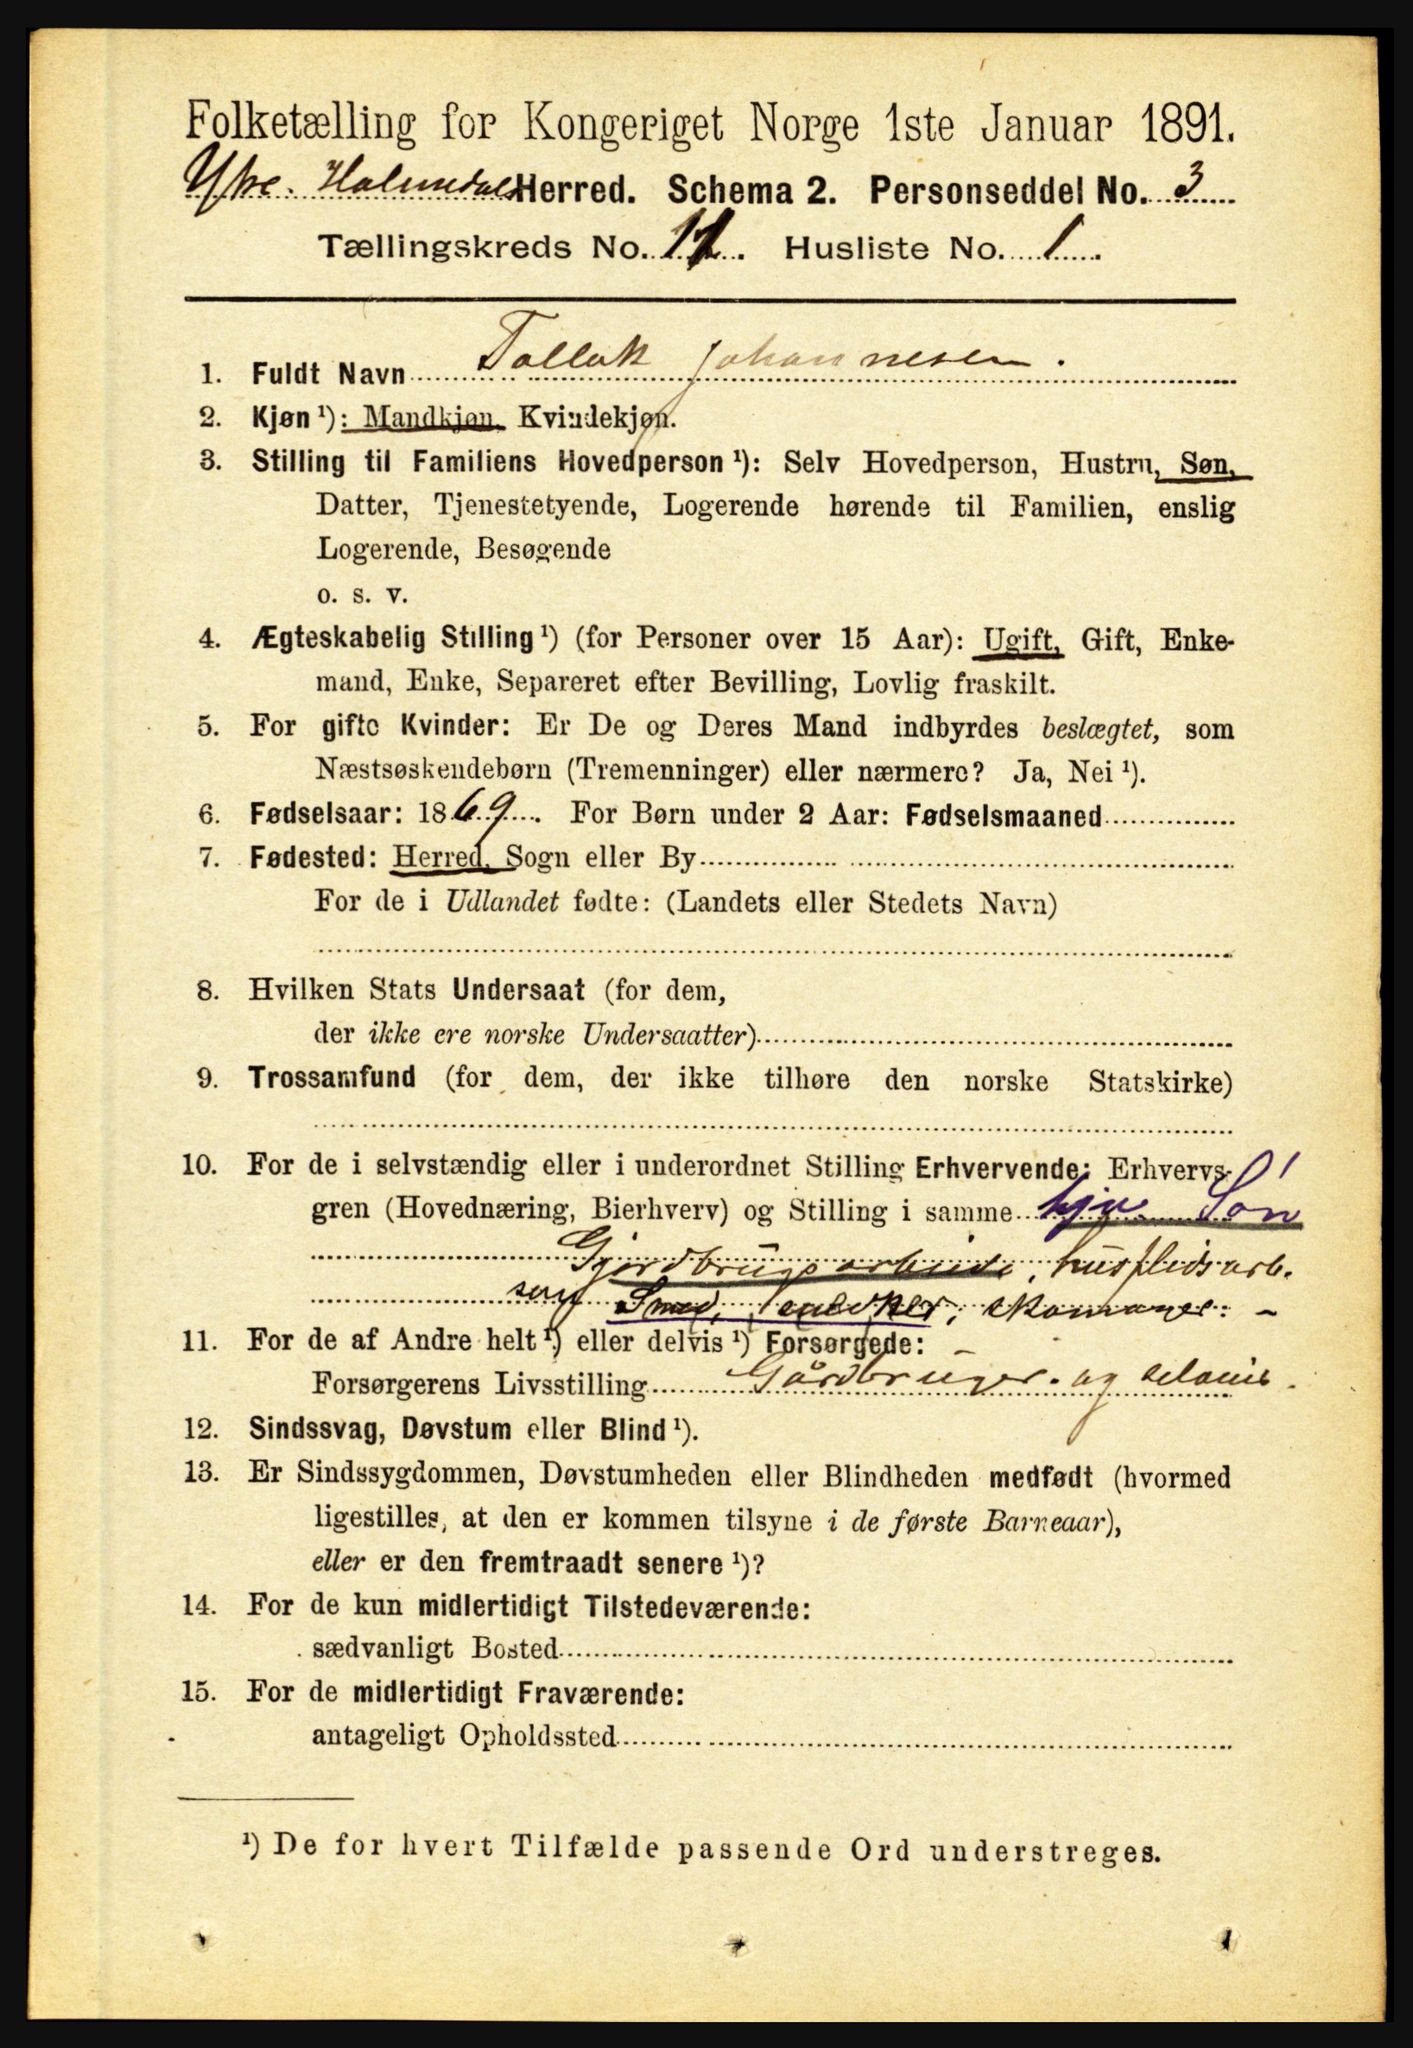 Folketælling for Kongeriget Norge 1ste Januar 1891.
Ytre. Holmedals Herred. Schema 2. Personseddel No. 3
Tællingskreds No. 11. Husliste No. 1.
1. Fuldt Navn Tollak Johannesen.
2. Kjøn ¹): Mandkjøn, Kvindekjøn.
3. Stilling til Familiens Hovedperson ¹): Selv Hovedperson, Hustru, Søn,
Datter, Tjenestetyende, Logerende hørende til Familien, enslig
Logerende, Besøgende
o. s. v.
4. Ægteskabelig Stilling ¹) (for Personer over 15 Aar): Ugift, Gift, Enke-
mand, Enke, Separeret efter Bevilling, Lovlig fraskilt.
5. For gifte Kvinder: Er De og Deres Mand indbyrdes beslægtet, som
Næstsøskendebørn (Tremenninger) eller nærmere? Ja, Nei ¹).
6. Fødselsaar: 1869. For Børn under 2 Aar: Fødselsmaaned
7. Fødested: Herred, Sogn eller By
For de i Udlandet fødte: (Landets eller Stedets Navn)
8. Hvilken Stats Undersaat (for dem,
der ikke ere norske Undersaatter)
9. Trossamfund (for dem, der ikke tilhøre den norske Statskirke)
10. For de i selvstændig eller i underordnet Stilling Erhvervende: Erhvervs-
gren (Hovednæring, Bierhverv) og Stilling i samme hjv Søn
Gjordbrugsarbeide, husflidsarb.
som Smed, Snedker, skomager: -
11. For de af Andre helt ¹) eller delvis ¹) Forsørgede:
Forsørgerens Livsstilling Gårdbruger. og
12. Sindssvag, Døvstum eller Blind ¹).
13. Er Sindssygdommen, Døvstumheden eller Blindheden medfødt (hvormed
ligestilles, at den er kommen tilsyne i de første Barneaar),
eller er den fremtraadt senere ¹)?
14. For de kun midlertidigt Tilstedeværende:
sædvanligt Bosted
15. For de midlertidigt Fraværende:
antageligt Opholdssted
¹) De for hvert Tilfælde passende Ord understreges.